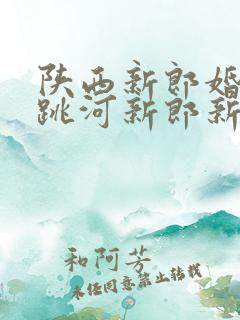 陕西新郎婚
跳河新郎新
和阿芳
未经同意禁止转载